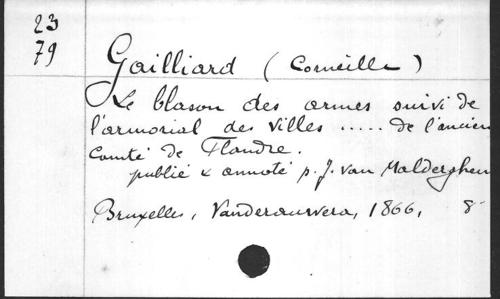 23
79
Gailliard (Corneille)
Le blason des armes suivi de
l'armorial des villes ..... de l'ancien
Comté de Flandre.
publié & annoté p. J. van Malderghem
Bruxelles, Vanderauwera, 1866, 8°